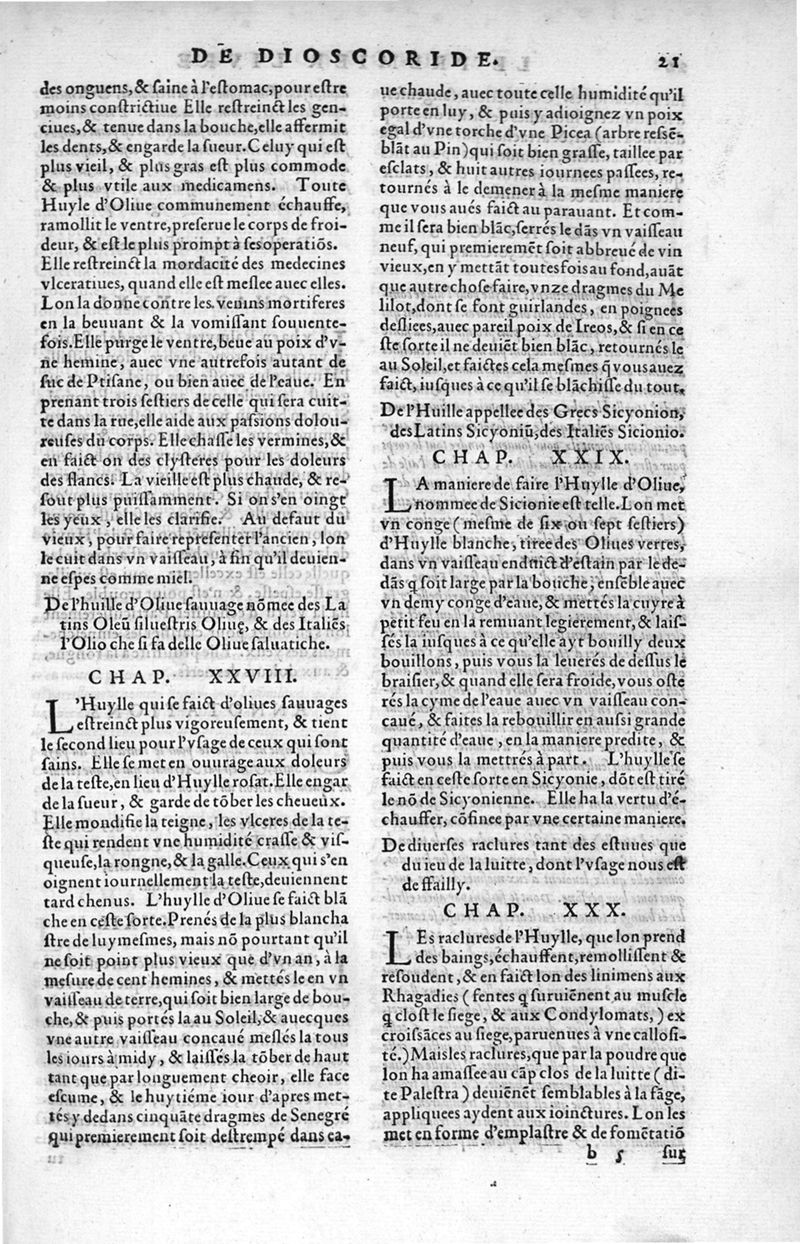 DE DIOSCORIDE. 21
des onguens,& saine à l'estomac,pour estre
moins constrictiue Elle restreinct les gen-
ciues,& tenue dans la bouche,elle affermit
les dents,& engarde la sueur.Celuy qui est
plus vieil, & plus gras est plus commode
& plus vtile aux medicamens. Toute
Huyle d'Oliue communement échauffe,
ramollit le ventre,preserue le corps de froi-
deur, & est le plus prompt à ses operatiõs.
Elle restreinct la mordacité des medecines
vlceratiues, quand elle est meslee auec elles.
Lon la donne contre les venins mortiferes
en la beuuant & la vomissant souuente-
fois.Elle purge le ventre,beue au poix d'v-
ne hemine, auec vne autrefois autant de
suc de Ptisane, ou bien auec de l'eaue. En
prenant trois sestiers de celle qui sera cuit-
te dans la rue,elle aide aux passions dolou-
reuses du corps. Elle chasse les vermines,&
en faict on des clysteres pour les doleurs
des flancs. La vieille est plus chaude, & re-
sout plus puissamment. Si on s'en oingt
les yeux, elle les clarifie. Au defaut du
vieux, pour faire representer l'ancien, lon
le cuit dans vn vaisseau, à fin qu'il deuien-
ne espes comme miel.
De l'huille d'Oliue sauuage nõmee des La
tins Oleũ siluestris Oliuę, & des Italiẽs
l'Olio che si fa delle Oliue saluatiche.
CHAP. XXVIII.
L'Huylle qui se faict d'oliues sauuages
estreinct plus vigoreusement, & tient
le second lieu pour l'vsage de ceux qui sont
sains. Elle se met en ouurage aux doleurs
de la teste,en lieu d'Huylle rosat.Elle engar
de la sueur, & garde de tõber les cheueux.
Elle mondifie la teigne, les vlceres de la te-
ste qui rendent vne humidité crasse & vis-
queuse,la rongne,& la galle.Ceux qui s'en
oignent iournellement la teste,deuiennent
tard chenus. L'huylle d'Oliue se faict blã
che en ceste sorte.Prenés de la plus blancha
stre de luymesmes, mais nõ pourtant qu'il
ne soit point plus vieux que d'vn an, à la
mesure de cent hemines, & mettés le en vn
vaisseau de terre,qui soit bien large de bou-
che,& puis portés la au Soleil,& auecques
vne autre vaisseau concaué meslés la tous
les iours à midy, & laissés la tõber de haut
tant que par longuement cheoir, elle face
escume, & le huytiéme iour d'apres met-
tés y dedans cinquãte dragmes de Senegré
qui premierement soit destrempé dans ea-
ue chaude, auec toute celle humidité qu'il
porte en luy, & puis y adioignez vn poix
egal d'vne torche d'vne Picea (arbre ressẽ-
blãt au Pin) qui soit bien grasse, taillee par
esclats, & huit autres iournees passees, re-
tournés à le demener à la mesme maniere
que vous aués faict au parauant. Et com-
me il sera bien blãc, serrés le dãs vn vaisseau
neuf, qui premieremẽt soit abbreué de vin
vieux, en y mettãt toutesfois au fond, auãt
que autre chose faire, vnze dragmes du Me
lilot,dont se font guirlandes, en poignees
desliees,auec pareil poix de Ireos,& si en ce
ste sorte il ne deuiẽt bien blãc, retournés le
au Soleil,et faictes cela mesmes q̃ vous auez
faict, iusques à ce qu'il se blãchisse du tout.
De l'Huille appellee des Grecs Sicyonion,
des Latins Sicyoniũ,des Italiẽs Sicionio.
CHAP. XXIX.
LA maniere de faire l'Huylle d'Oliue,
nommee de Sicionie est telle. Lon met
vn conge (mesme de six ou sept sestiers)
d'Huylle blanche, tiree des Oliues vertes,
dans vn vaisseau enduict d'estain par le de-
dãs q̃ soit large par la bouche, ensẽble auec
vn demy conge d'eaue, & mettés la cuyre à
petit feu en la remuant legierement, & lais-
sés la iusques à ce qu'elle ayt bouilly deux
bouillons, puis vous la leuerés de dessus le
brasier,& quand elle sera froide, vous oste
rés la cyme de l'eaue auec vn vaisseau con-
caué, & faites la rebouillir en aussi grande
quantité d'eaue, en la maniere predite, &
puis vous la mettrés à part. L'huylle se
faict en ceste sorte en Sicyonie, dõt est tiré
le nõ de Sicyonienne. Elle ha la vertu d'é-
chauffer, cõfinee par vne certaine maniere.
De diuerses raclures tant des estuues que
du ieu de la luitte, dont l'vsage nous est
deffailly.
CHAP. XXX.
LEs raclures de l'Huylle, que lon prend
des baings, échauffent, remollissent &
resoudent, & en faict lon des linimens aux
Rhagadies (fentes q̃ suruiẽnent au muscle
q̃ clost le siege, & aux Condylomats,) ex
croissãces au siege,paruenues à vne callosi-
té.) Mais les raclures, que par la poudre que
lon ha amassee au cãp clos de la luitte (di-
te Palestra) deuiẽnẽt semblables à la fãge,
appliquees aydent aux ioinctures. Lon les
met en forme d'emplastre & de fomẽtatiõ
b 5 sur